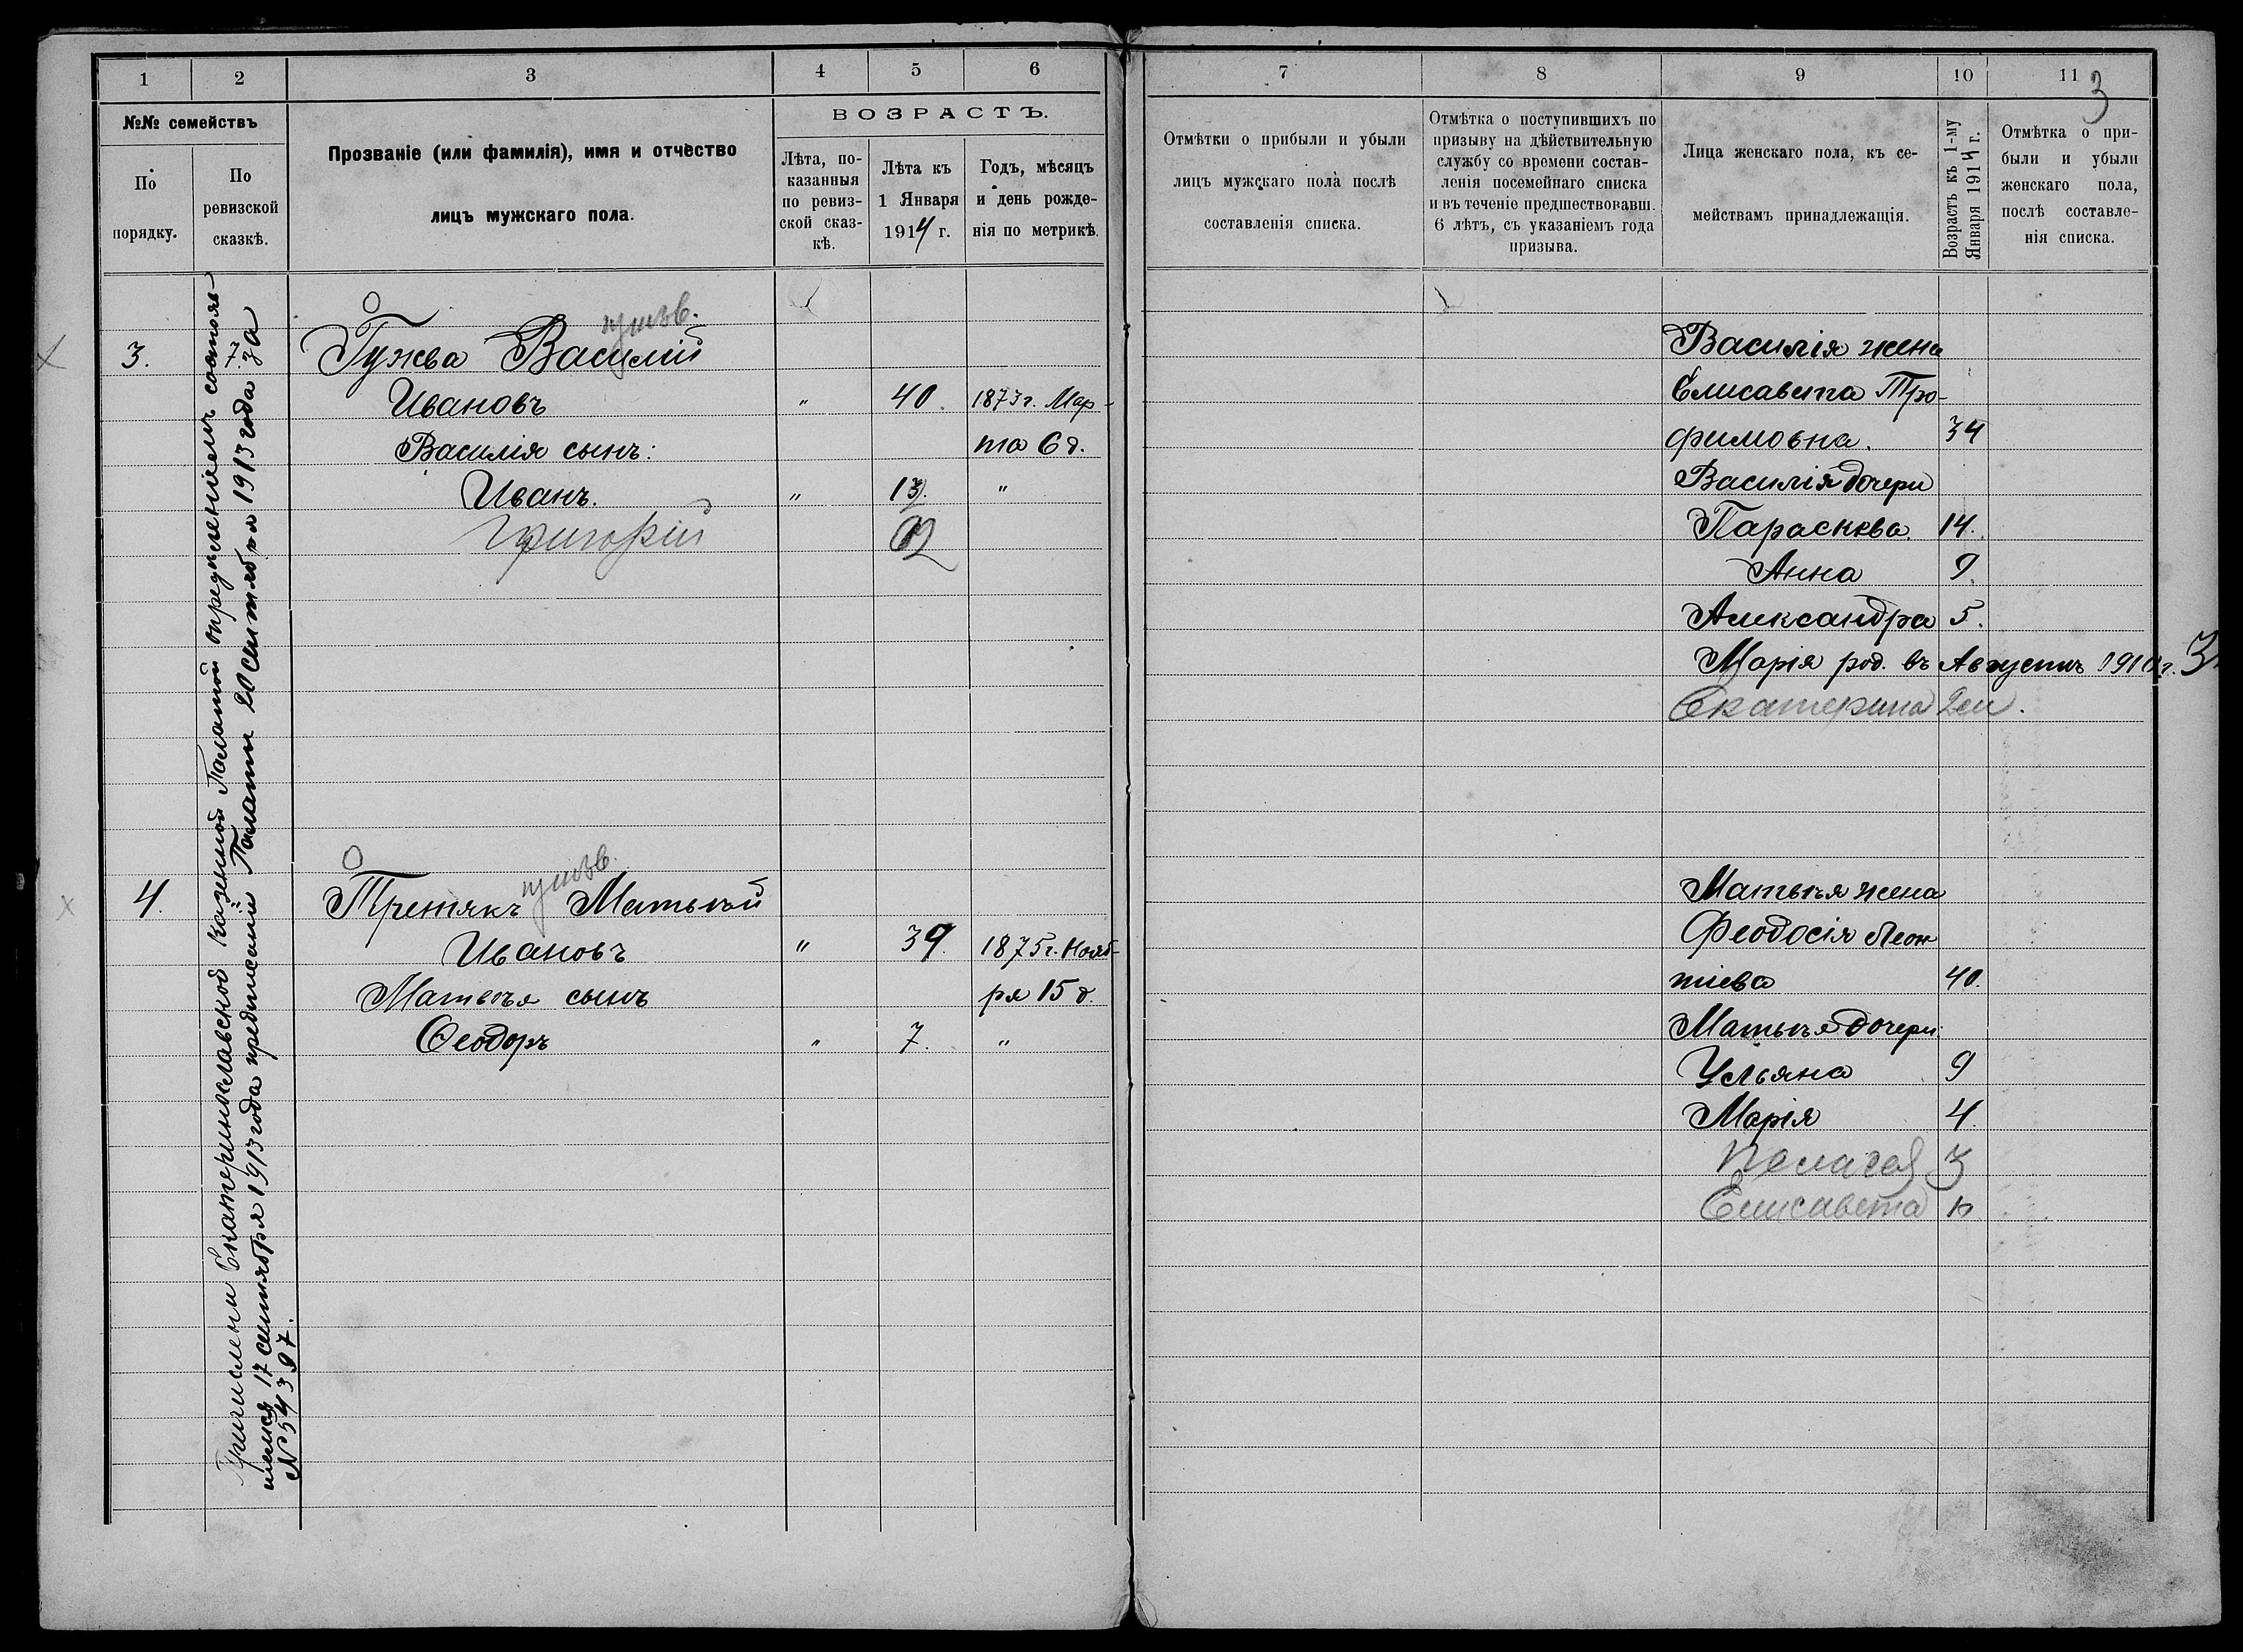 1 2 3 4 5 6
№№ семействъ
По порядку.
По ревизской сказкѣ.
Прозваніе (или фамилія), имя и отчество
лицъ мужскаго пола.
ВОЗРАСТЪ.
Лѣта, по-
казанныя
по ревиз-
ской сказ-
кѣ.
Лѣта къ
1 Января
1914 г.
Годъ, мѣсяцъ
и день рожде-
нія по метрикѣ.
Причислены Екатеринославской Казенной Палатой опредѣленіемъ состояв-
шемся 17 сентября 1913 года предписаніи Палаты 20 сентября 1913 года за
№ 54397.
3. 7. Гужва Василій
Ивановъ " 40. 1873 г. Мар-
Василія сынъ: та 6 д.
Иванъ. " 13. "
Григорій
4. Третякъ Матвѣй
Ивановъ " 39. 1875 г. Нояб-
Матвѣя сынъ ря 15 д.
Ѳеодоръ " 7. "
7 8 9 10 11
3
Отмѣтки о прибыли и убыли
лицъ мужскаго пола послѣ
составленія списка.
Отмѣтка о поступившихъ по
призыву на дѣйствительную
службу со времени состав-
ленія посемейнаго списка
и въ теченіе предшествовавш.
6 лѣтъ, съ указаніемъ года
призыва.
Лица женскаго пола, къ се-
мействамъ принадлежащія.
Возрастъ къ 1-му
Января 1914 г.
Отмѣтка о при-
были и убыли
женскаго пола,
послѣ составле-
нія списка.
Василія жена
Елисавета Тро-
фимовна. 34
Василія дочери
Параскева. 14.
Анна 9.
Александра 5.
Марія род. въ Августѣ 1910 г. 3
Екатерина
Матвѣя жена
Феодосія Леон
тіева 40.
Матвѣя дочери:
Ульяна 9
Марія 4.
Пелагея 3
Елисавета